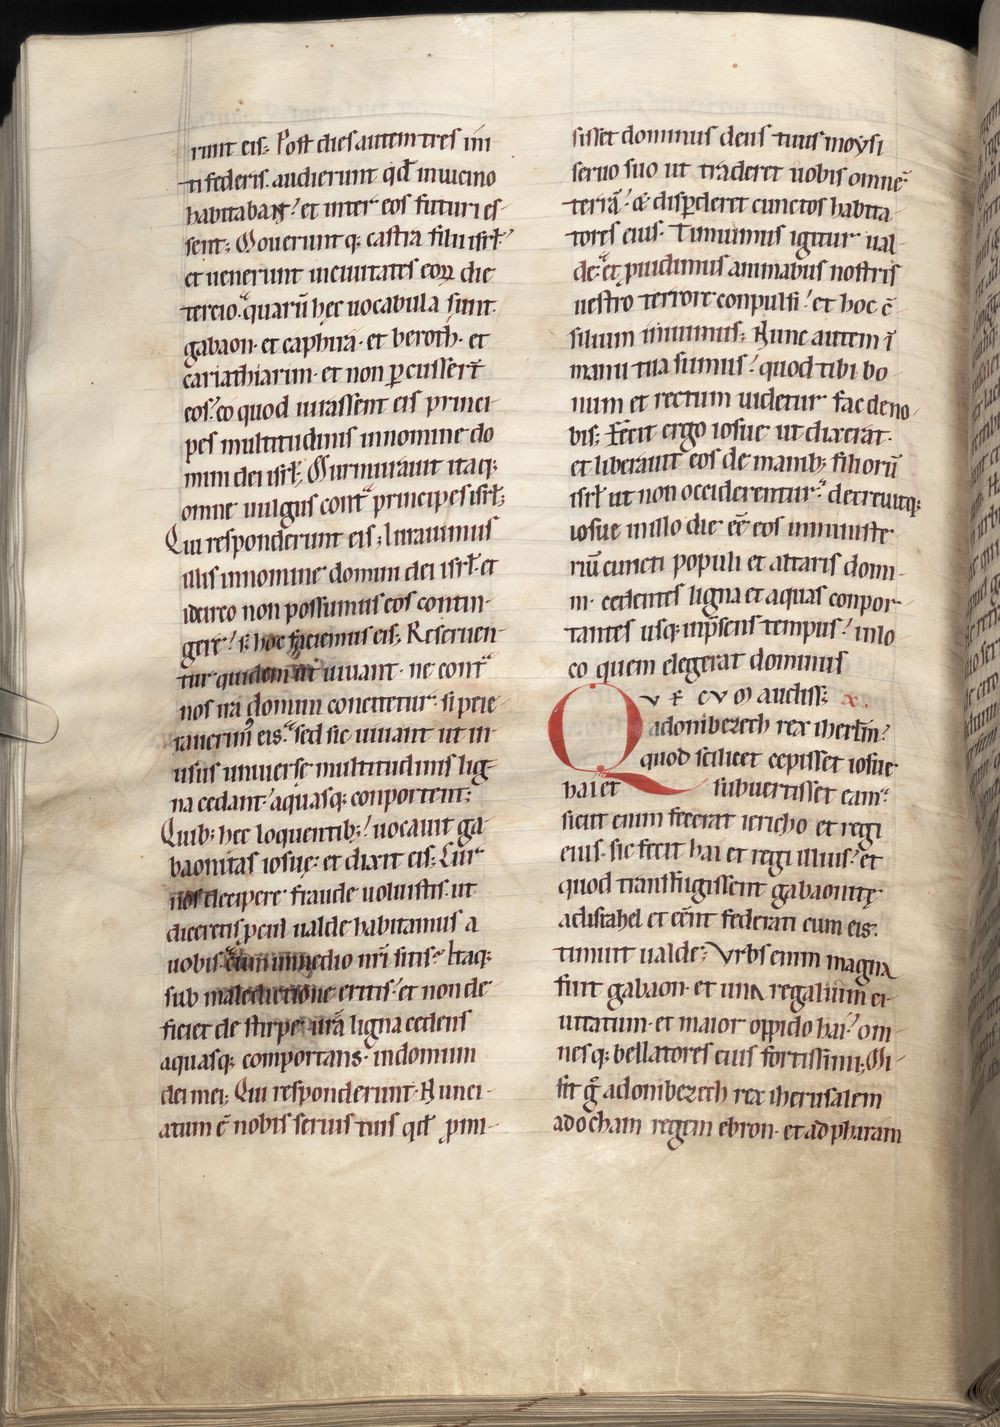 runt eis; Post dies autem tres ini
ti federis. audierunt qđ in uicino
habitabant; et inter eos futuri es-
sent; Mouerunt q; castra filii isrł.
et uenerunt in ciuitates eoꝝ die
tercio. quarū hec uocabula sunt.
gabaon. et caphira. et beroth. et
cariathiarim. et non ꝑcusserūt
eos. eo quod iurassent eis princi-
pes multitudinis in nomine do
mini dei isrł; Murmurauit itaq;
omne uulgus contͣ principes isrł;
Qui responderunt eis; Iurauimus
illis in nomine domini dei isrł. et
idcirco non possumus eos contin-
gere; s; hoc faciemus eis; Reseruen-
tur quidem ut uiuant. ne contͣ
nos ira domini concitetur. si peie
rauerimꝰ eis. sed sic uiuant ut in
usus uniuerse multitudinis lig
na cedant. aquasq; conportent;
Quib; hec loquentib; uocauit ga
baonitas iosue. et dixit eis; Cur
nos decipere fraude uoluistis. ut
diceretis ꝓcul ualde habitamus a
uobis. cum in medio nr̄i sitis; Itaq;
sub maledictione eritis. et non de-
ficiet de stirpe urā ligna cedens
aquasq; comportans. in domum
dei mei; Qui responderunt. Nunci-
atum ē nobis seruis tuis qđ ꝓmi-
sisset dominus deus tuus moysi
seruo suo ut traderet uobis omnē
terrā. & disꝑderet cunctos habita
tores eius. Timuimus igitur ual-
de. et puidimus animabus nostris
uestro terrore conpulsi. et hoc c̄
silium iniuimus; Nunc autem ī
manu tua sumus. quod tibi bo
num et rectum uidetur fac de no-
bis; Fecit ergo iosue ut dixerat.
et liberauit eos de manib; filiorū
isrł ut non occiderentur. decreuitq;
iosue in illo die eē eos in ministe-
riū cuncti populi et altaris domi-
ni. cedentes ligna et aquas conpor
tantes usq; in p̄sens tempus. in lo
co quem elegerat dominus
QVE CVM audiss; x.
adonibezech rex ihertm̄.
quod scilicet cepisset iosue
hai et subuertisset eam.
sicut enim fecerat iericho et regi
eius. sic fecit hai et regi illius. et
quod transfugissent gabaonitę
ad israhel et eēnt federati cum eis.
timuit ualde; Vrbs enim magna
fuit gabaon. et una regalium ci-
uitatum. et maior oppido hai. om-
nesq; bellatores eius fortissimi; Mi-
sit g̃ adonibezech rex iherusalem
ad ocham regem ebron. et ad pharam